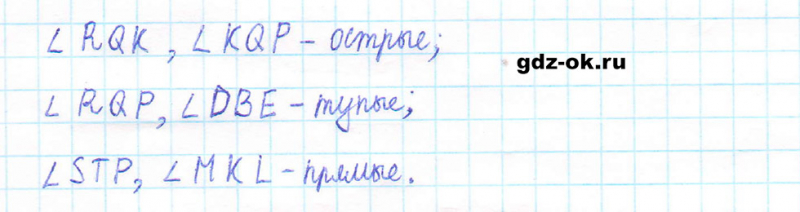 ∠ RQK, ∠ KQP - острые;
gdz-ok.ru
∠ RQP, ∠ DBE - тупые;
∠ STP, ∠ MKL - прямые.